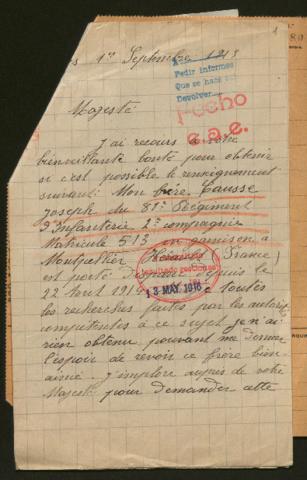 1er Septembre 1915
Pedir informes
Que se ha
Devolver
Fecho
Majesté
J'ai recours à votre
bienveillante bonté pour obtenir
si c'est possible le renseignement
suivant: Mon frère Causse
Joseph du 81e Régiment
d'Infanterie 2e compagnie
Matricule 513 en garnison à
Montpellier Hérault (France)
est porté disparu depuis le
22 Août 1914 toutes
les recherches faites par les autorités
compétentes à ce sujet je n'ai
rien obtenu pouvant me donner
l'espoir de revoir ce frère bien
aimé J'implore auprès de votre
Majesté pour demander cette
13 MAY. 1916